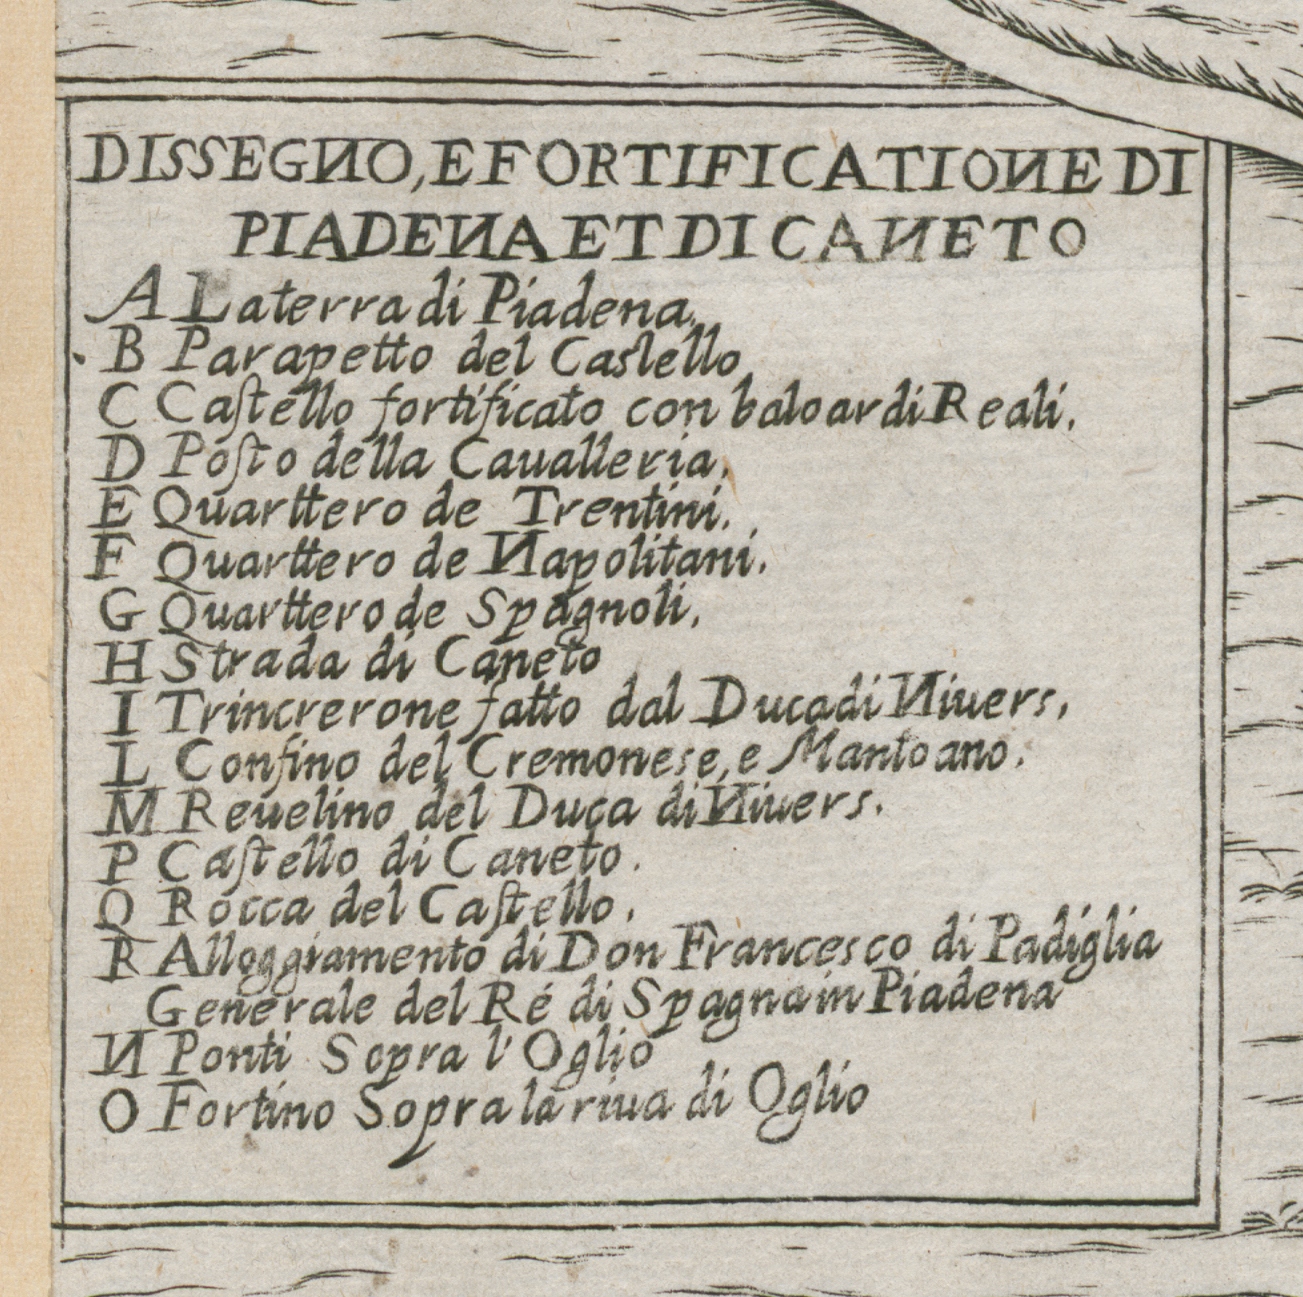 DISSEGNO, E FORTIFICATIONE DI
PIADENA ET DI CANETO
A La terra di Piadena.
B Parapetto del Castello
C Caſtello fortificato con baloardi Reali.
D Poſto della Caualleria.
E Quarttero de Trentini.
F Quarttero de Napolitani.
G Quarttero de Spagnoli.
H Strada di Caneto
I Trincrerone fatto dal Duca di Niuers,
L Confino del Cremonese, e Mantoano.
M Reuelino del Duca di Niuers.
P Caſtello di Caneto.
Q Rocca del Caſtello.
R Alloggiamento di Don Francesco di Padiglia
Generale del Ré di Spagna in Piadena
N Ponti Sopra l'Oglio
O Fortino Sopra la riua di Oglio